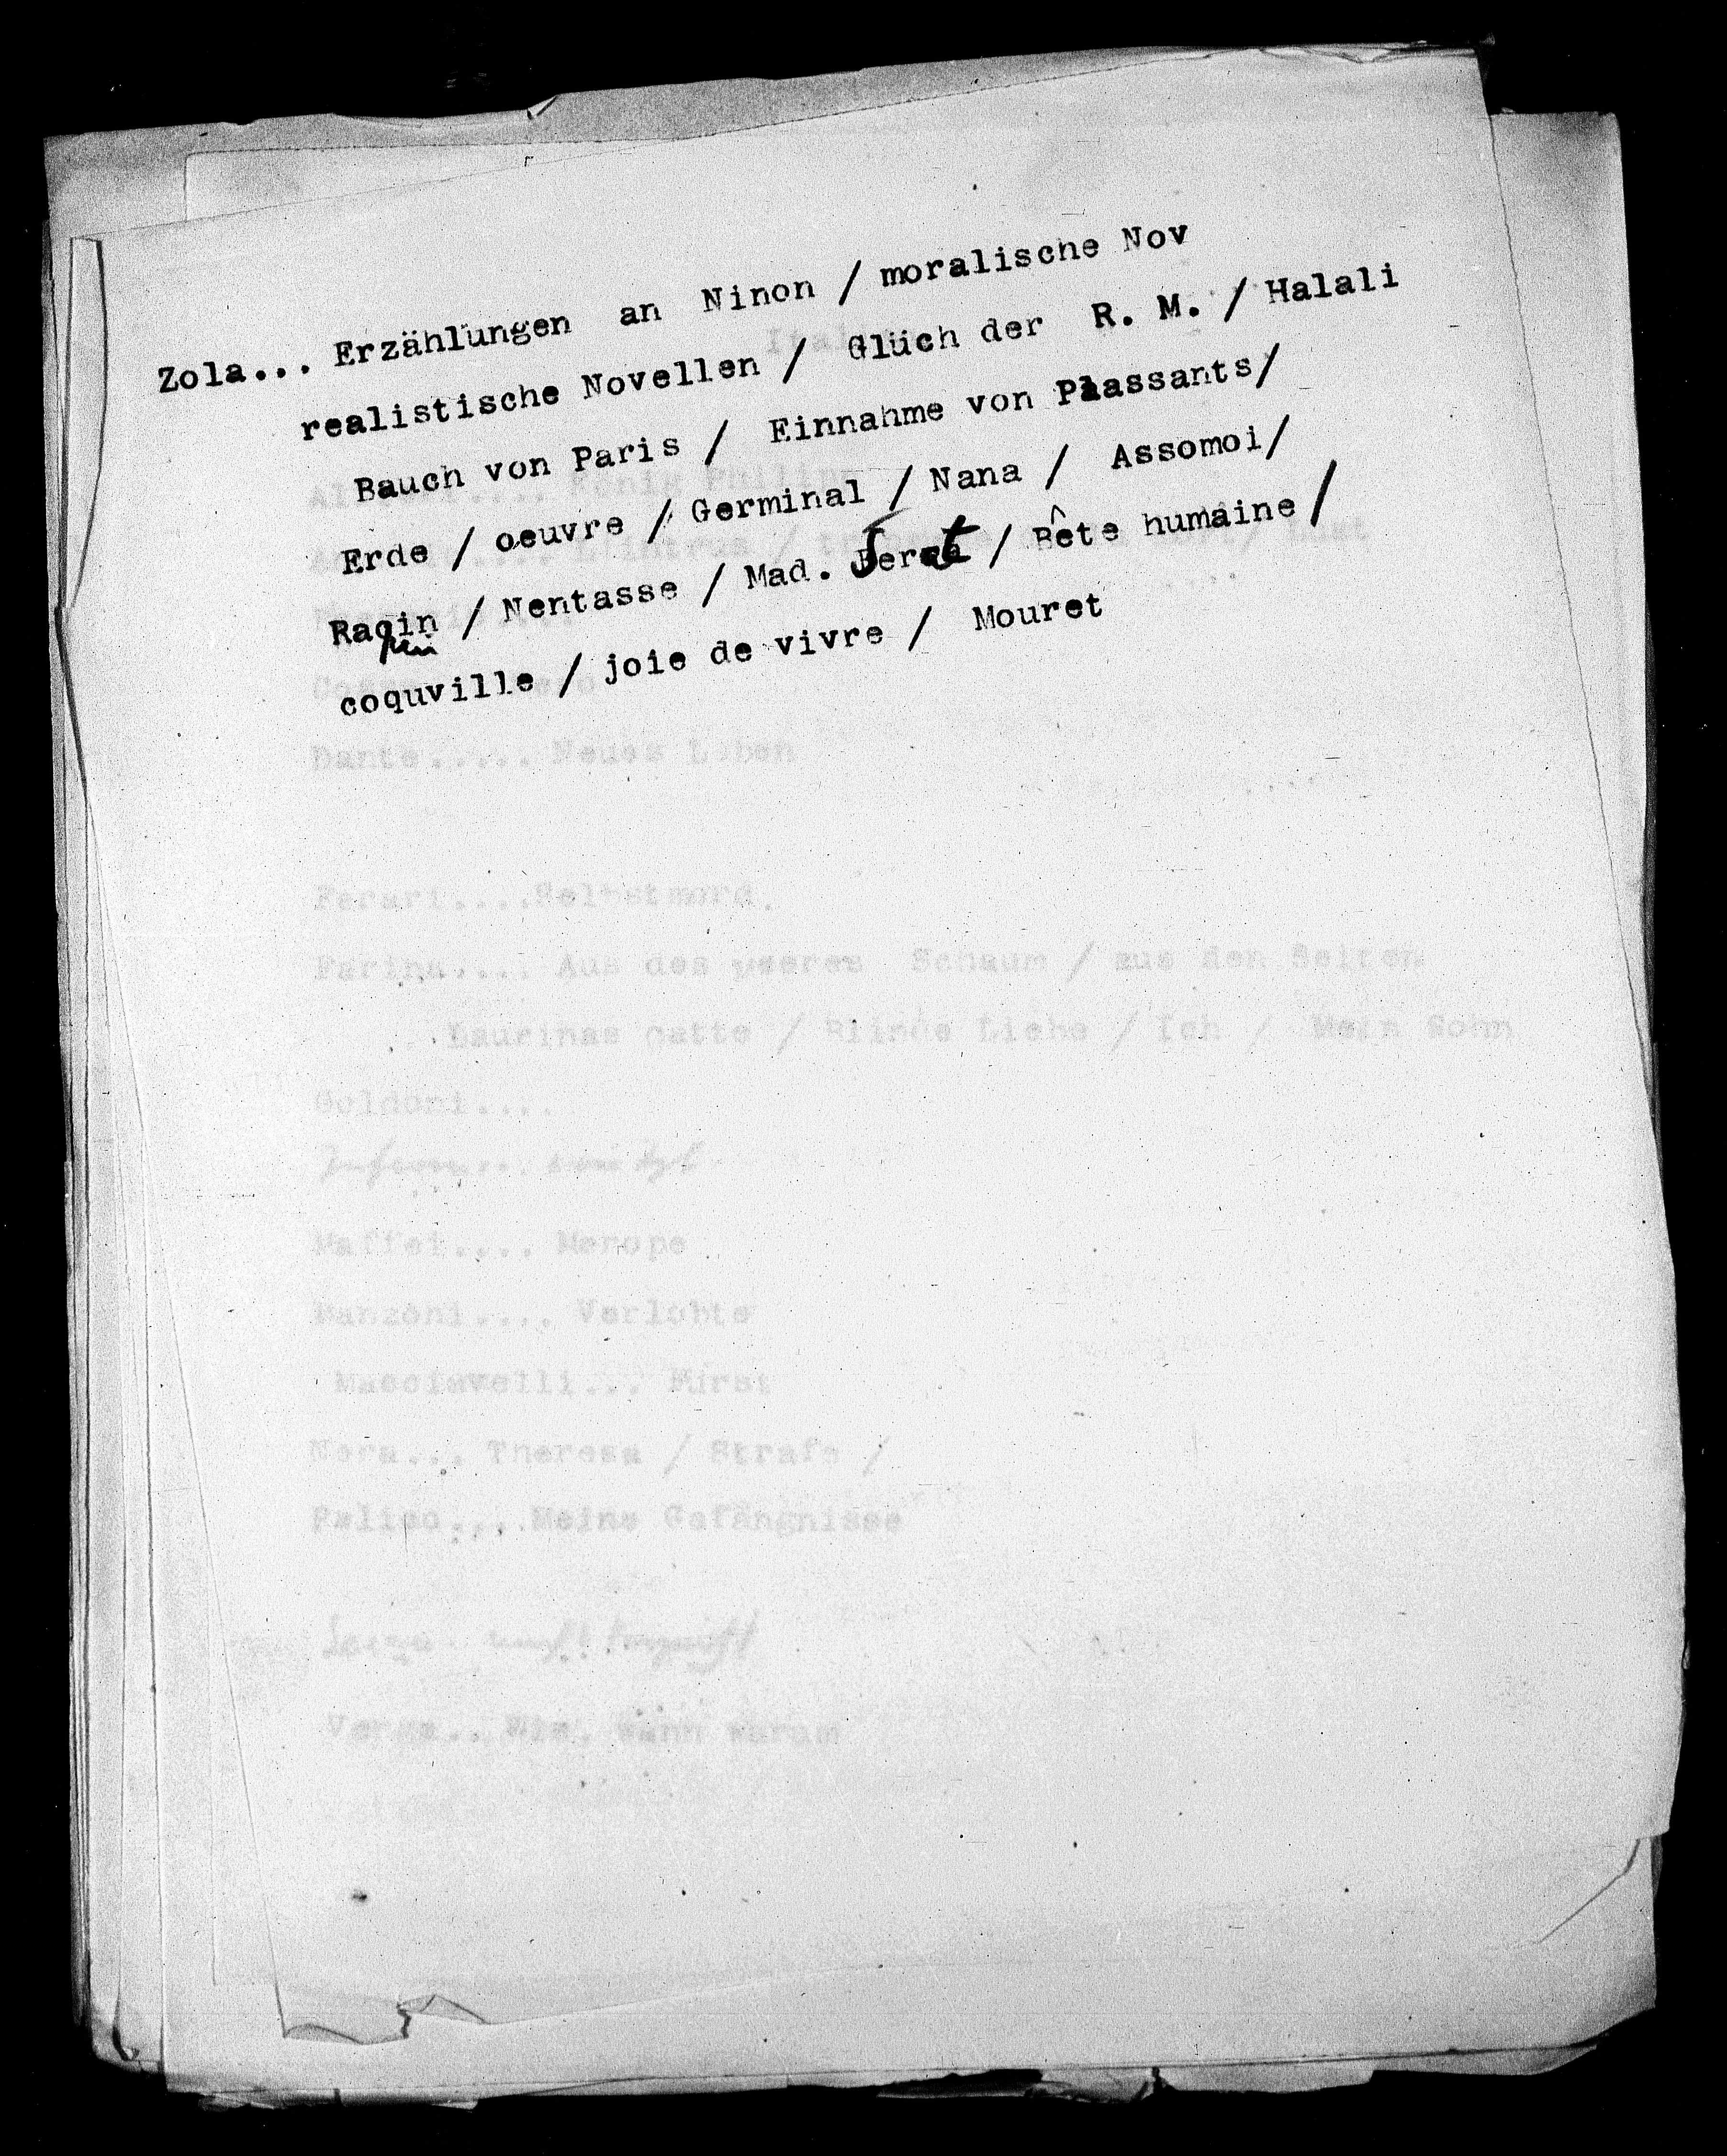 Zola... Erzählungen an Ninon / moralische Nov
realistische Novellen / Glüch der R. M. / Halali
Bauch von Paris / Einnahme von Plassants/
Erde / oeuvre / Germinal / Nana / Assomoi/
Raqin / Nentasse / Mad. / Bête humaine /
coquville / joie de vivre / Mouret
Ital
König Philipp
L'intrus /
Dante..... Neues Leben
Ferari....Selbstmord.
Farina.... Aus des meeres Schaum / aus den Seiten
Laurinas gatte / Blinde Liebe / Ich / Mein Sohn
Goldoni....
Maffei.... Merope
Manzoni.... Verlobte
Macciavelli... Fürst
Nera... Theresa / Strafe /
Pelico....Meine Gefängnisse
Verga.. Wie, wann warum